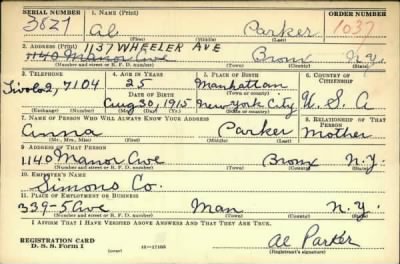 SERIAL NUMBER 1. NAME (Print) ORDER NUMBER
3827 Al Parker 1037
(First) (Middle) (Last)
1137 WHEELER AVE
2. ADDRESS (Print)
1140 Manor Ave Bronx N.Y.
(Number and street or R. F. D. number) (Town) (County) (State)
3. TELEPHONE 4. AGE IN YEARS 5. PLACE OF BIRTH 6. COUNTRY OF CITIZENSHIP
Tivoli 2, 7104 25 Manhattan
DATE OF BIRTH (Town or county)
Aug 30, 1915 New York City U.S.A
(Exchange) (Number) (Mo.) (Day) (Yr.) (State or country)
7. NAME OF PERSON WHO WILL ALWAYS KNOW YOUR ADDRESS 8. RELATIONSHIP OF THAT PERSON
Anna Parker Mother
(Mr., Mrs., Miss) (First) (Middle) (Last)
9. ADDRESS OF THAT PERSON
1140 Manor Ave Bronx N.Y.
(Number and street or R. F. D. number) (Town) (County) (State)
10. EMPLOYER'S NAME
Simons Co.
11. PLACE OF EMPLOYMENT OR BUSINESS
339-5 Ave Man N.Y.
(Number and street or R. F. D. number) (Town) (County) (State)
I AFFIRM THAT I HAVE VERIFIED ABOVE ANSWERS AND THAT THEY ARE TRUE.
REGISTRATION CARD
D. S. S. Form 1 (over) 16—17105 Al Parker
(Registrant's signature)